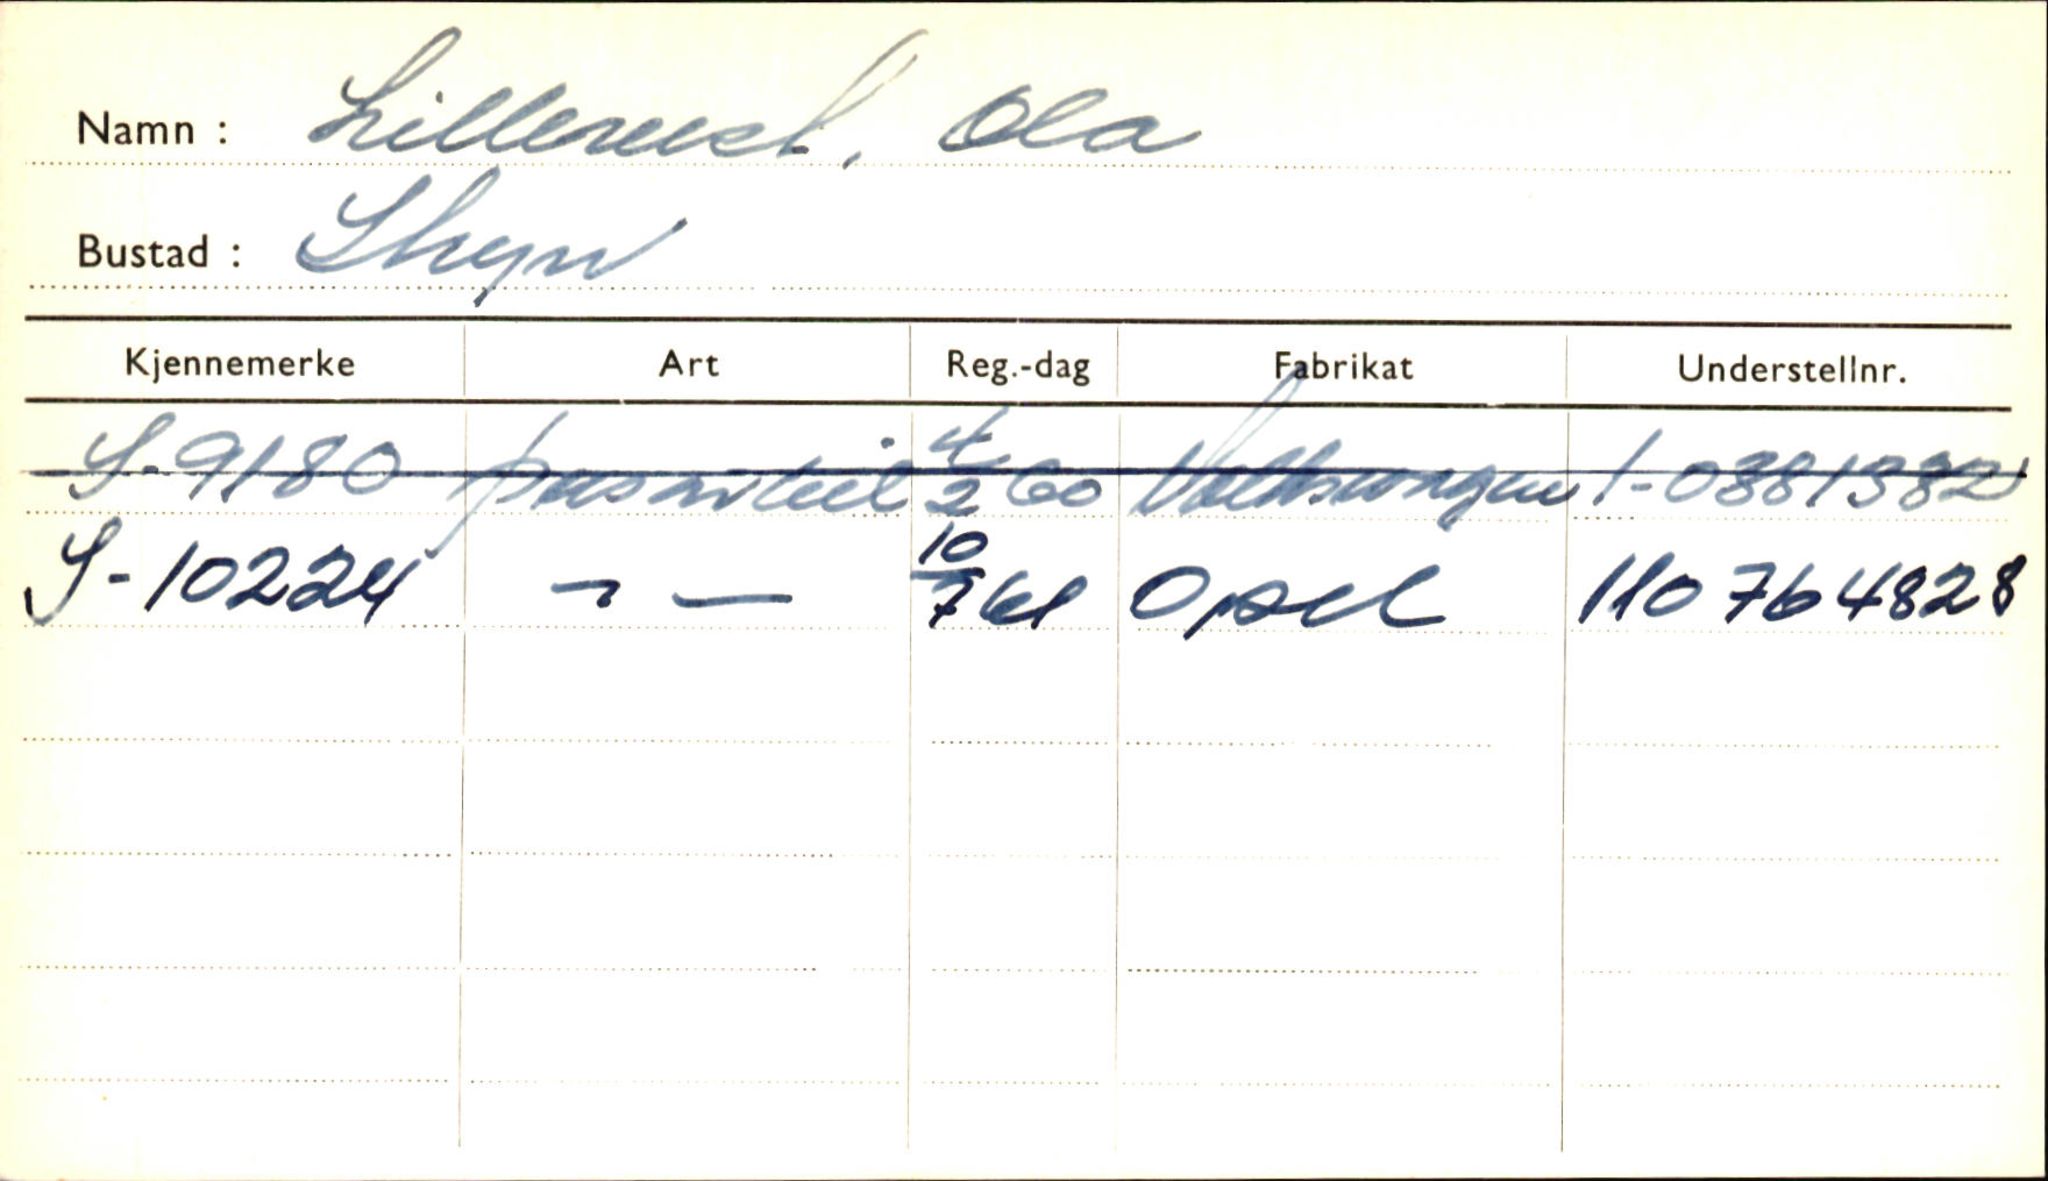 Namn : Lillerud, Ola
Bustad : Stryn
Kjennemerke Art Reg.-dag Fabrikat Understellnr.
S-9180 personbil 4/2 60 Volkswagen 1-0381382
S-10224 - " - 10/7 61 Opel 110764828